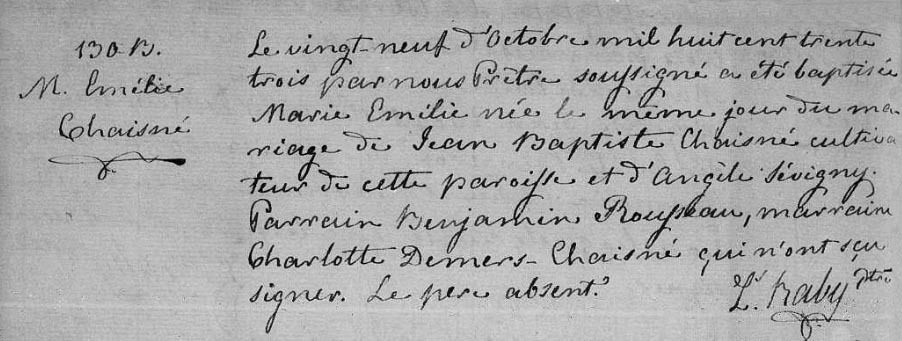 130 B.
M. Emélie
Chaisné
Le vingt-neuf d'Octobre mil huit cent trente
trois par nous Prêtre soussigné a été baptisée
Marie Emélie née le même jour du ma-
riage de Jean Baptiste Chaisné cultiva
teur de cette paroisse et d'Angèle Sévigny.
Parrain Benjamin Rousseau, marraine
Charlotte Demers-Chaisné qui n'ont sçu
signer. Le pere absent.
Ls. Raby ptre